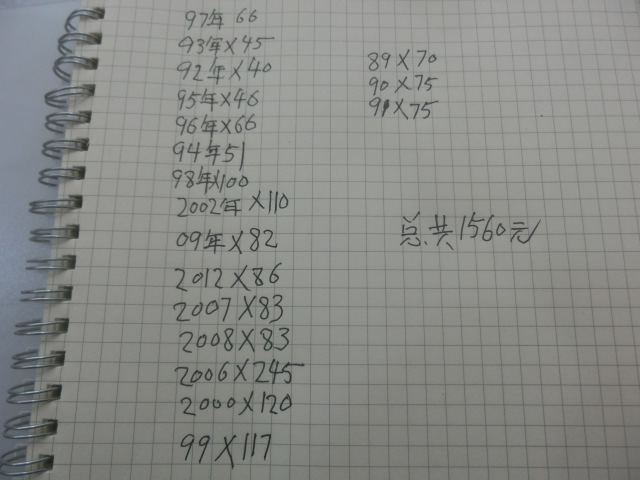 97年66
93年X45
92年X40
95年X46
96年X66
94年51
98年X100
2002年X110
09年X82
2012X86
2007X83
2008X83
2006X245
2000X120
99X117
89X70
90X75
91X75
总共1560元